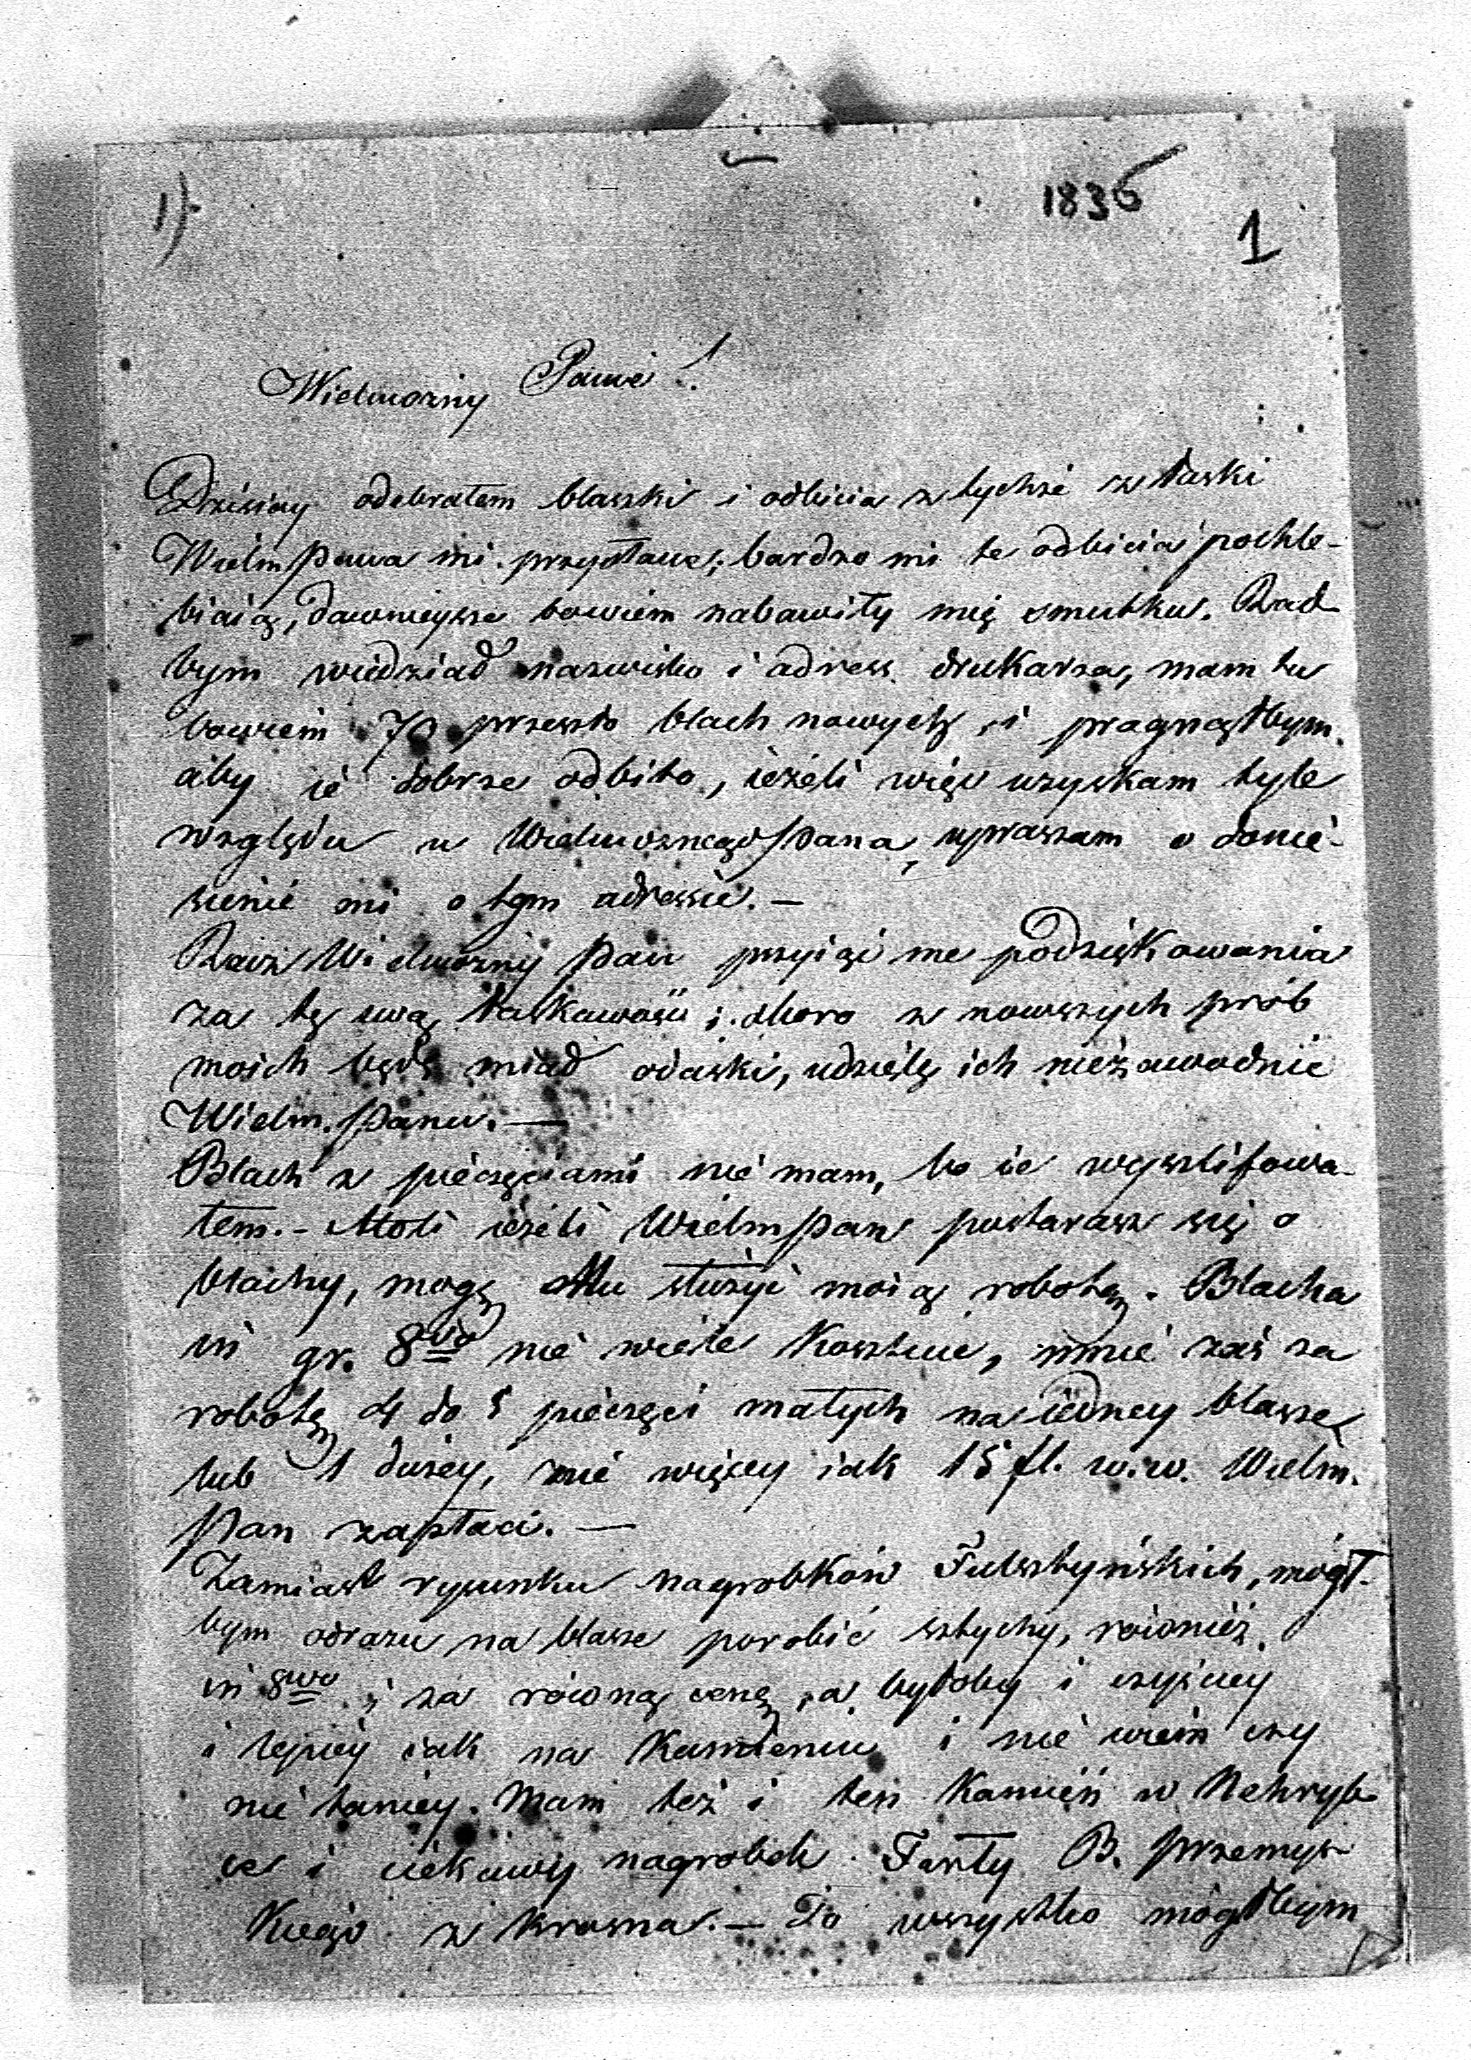 1)
1836
1
Wielmożny Panie!
Dzisiay odebrałem blaszki i odbicia z tychże z łaski
Wielm Pana mi przysłane; bardzo mi te odbicia pochle-
biaią, dawnieysze bowiem nabawiły mię smutku. Rad
bym wiedział nazwisko i adress drukarza, mam tu
bowiem 70 przeszło blach nowych, i pragnąłbym
aby ie dobrze odbito, ieżeli więc uzyskam tyle
względu u Wielmożnego Pana, upraszam o donie-
sienie mi o tym adressie. —
Racz Wielmożny Pan przyiąć me podziękowania
za tę swą łaskawość; skoro z nowszych prób
moich będę miał odciski, udzielę ich niezawodnie
Wielm. Panu. —
Blach z pieczęciami nie mam, bo ie wyszlifowa-
łem. - Atoli ieżeli Wielm Pan postarasz się o
blachy, mogę Mu służyć moią robotą. Blacha
in gr. 8vo nie wiele kosztuie, mnie zaś za
robotę 4 do 5 pieczęci małych na iedney blasze
lub 1 dużey, nie więcey iak 15 fl. w.w. Wielm.
Pan zapłaci. —
Zamiast rysunku nagrobków Fulsztyńskich, mógł-
bym odrazu na blasze porobić sztychy, również
in 8vo i za równą cenę, a byłoby i czyściey
i lepiey iak na kamieniu i nie wiem czy
nie taniey. Mam też i ten kamień w Nehryb-
ce i ciekawy nagrobek Tarły B. Przemys-
kiego z Krosna. — To wszystko mógłbym